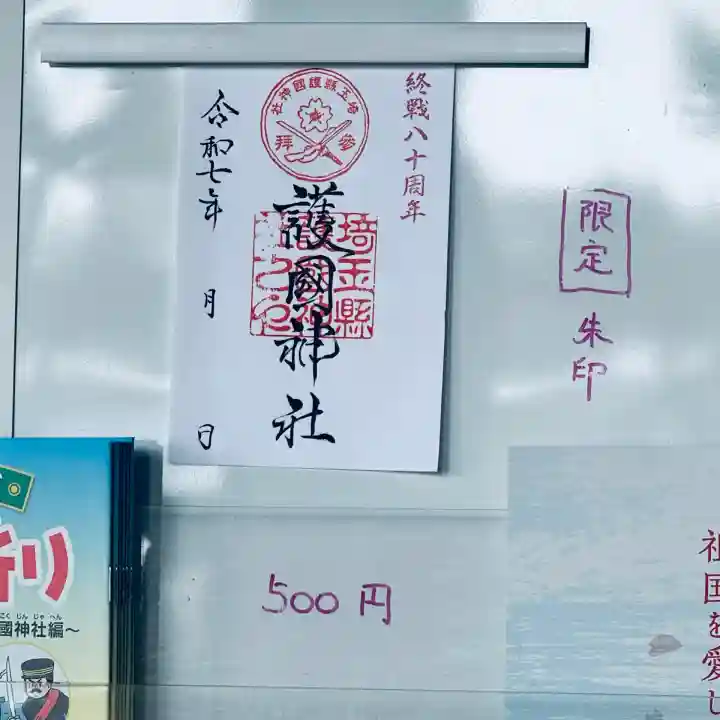 終戦八十周年
埼玉縣護國神社
参拝
護國神社
埼玉縣
令和七年
月
日
限定
朱印
500円
祈り
こくじんじゃへん
國神社編～
祖国を愛し